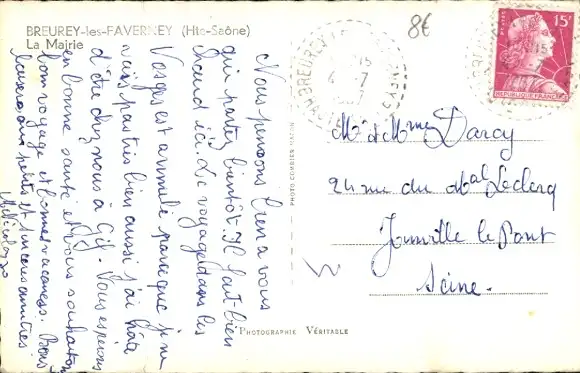 BREUREY-les-FAVERNEY (Hte-Saône)
La Mairie
8€
15F
POSTES
REPUBLIQUE FRANCAISE
Nous pensons bien a vous
qui partez bientôt. Il fait bien
chaud ici. Le voyage dans les
Vosges est annulé parce que je ne
suis pas très bien aussi j'ai hâte
d'être chez nous a Gif. Vous espérons
en bonne santé et vous souhaitons
bon voyage et bonnes vacances. Bons
baisers aux petits et sincères amitiés
Mr et Mme Darcy
24 rue du Mal Leclerq
Joinville le Pont
Seine.
PHOTO CORBIER MACON
PHOTOGRAPHIE VÉRITABLE